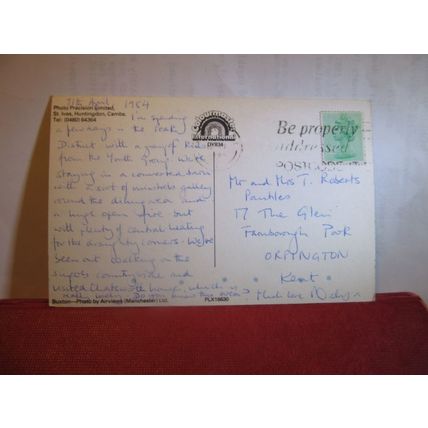 Photo Precision Limited,
St. Ives, Huntingdon, Cambs.
Tel: (0480) 64364
April 1984
I'm spending
a few days in the Peak
District with a gang of kids
from the Youth Group. We're
staying in a converted barn
with a sort of minstrels gallery
round the dining area and
a huge open fire but
with plenty of central heating
for the draughty corners. We've
been out walking in the
superb countryside and
visited Chatsworth house, which is
really lovely. Do you know this area?
Much love
Buxton—Photo by Airviews (Manchester) Ltd.
PLX16630
Colourmaster
International
Be properly
addressed
POSTCODE
Mr and Mrs T. Roberts
17 The Glen
Farnborough Park
ORPINGTON
Kent